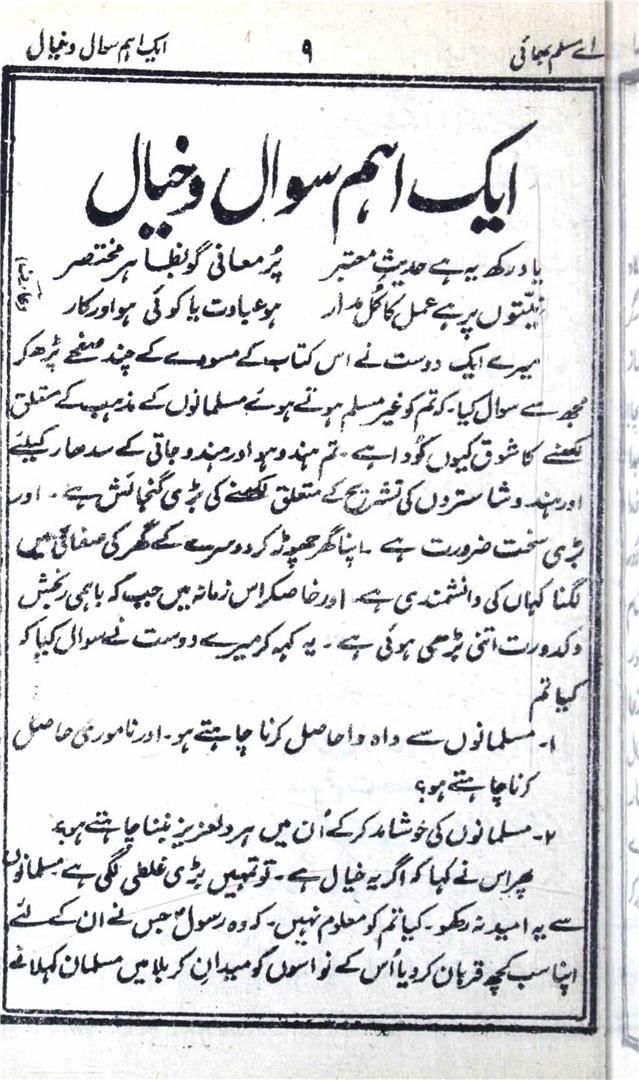 اے مسلم بھائی ۹ ایک اہم سوال و خیال
ایک اہم سوال و خیال
یاد رکھ یہ ہے حدیثِ معتبر پُر معانی گو بظاہر مختصر
نیّتوں پر ہے عمل کا کُل مدار ہو عبادت یا کوئی ہو اور کار
میرے ایک دوست نے اس کتاب کے مسودے کے چند صفحے پڑھ کر
مجھ سے سوال کیا۔ کہ تم کو غیر مسلم ہوتے ہوئے مسلمانوں کے مذہب کے متعلق
لکھنے کا شوق کیوں کُودا ہے۔ تم ہندو ہو اور ہندو جاتی کے سدھار کیلئے
اور ہندو شاستروں کی تشریح کے متعلق لکھنے کی بڑی گنجائش ہے۔ اور
بڑی سخت ضرورت ہے۔ اپنا گھر چھوڑ کر دوسرے کے گھر کی صفائی میں
لگنا کہاں کی دانشمندی ہے۔ اور خاصکر اس زمانہ میں جب کہ باہمی رنجش
و کدورت اتنی بڑھی ہوئی ہے۔ یہ کہہ کر میرے دوست نے سوال کیا کہ
کیا تم
۱۔ مسلمانوں سے واہ وا حاصل کرنا چاہتے ہو۔ اور ناموری حاصل
کرنا چاہتے ہو؟
۲۔ مسلمانوں کی خوشامد کر کے اُن میں ہر دلعزیز بننا چاہتے ہو؟
پھر اس نے کہا کہ اگر یہ خیال ہے۔ تو تمہیں بڑی غلطی لگی ہے مسلمانوں
سے یہ امید نہ رکھو۔ کیا تم کو معلوم نہیں۔ کہ وہ رسولؐ جس نے ان کے لئے
اپنا سب کچھ قربان کر دیا اُس کے نواسوں کو میدانِ کربلا میں مسلمان کہلانے